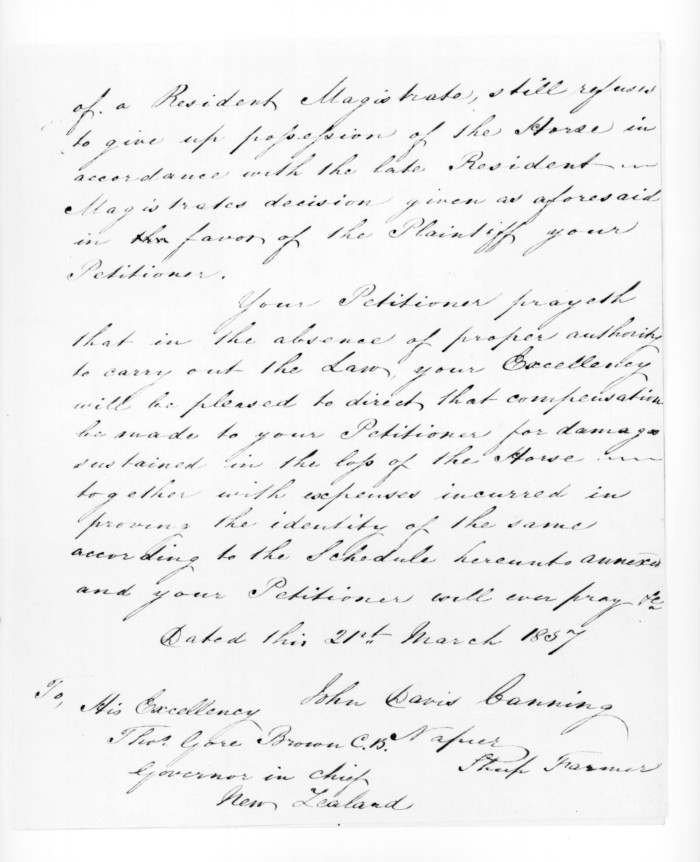 of a Resident Magistrate, still refuses
to give up possession of the Horse in
accordance with the late Resident
Magistrates decision given as aforesaid
in favor of the Plaintiff your
Petitioner.
Your Petitioner prayeth
that in the absence of proper authority
to carry out the Law, your Excellency
will be pleased to direct that compensation
be made to your Petitioner for damages
sustained in the loss of the Horse
together with expenses incurred in
proving the identity of the same
according to the Schedule hereunto annexed
and your Petitioner will ever pray &c
Dated this 21st March 1857
John Davis Canning
To, His Excellency
Thos. Gore Brown C.B. Napier
Sheep Farmer
Governor in Chief
New Zealand